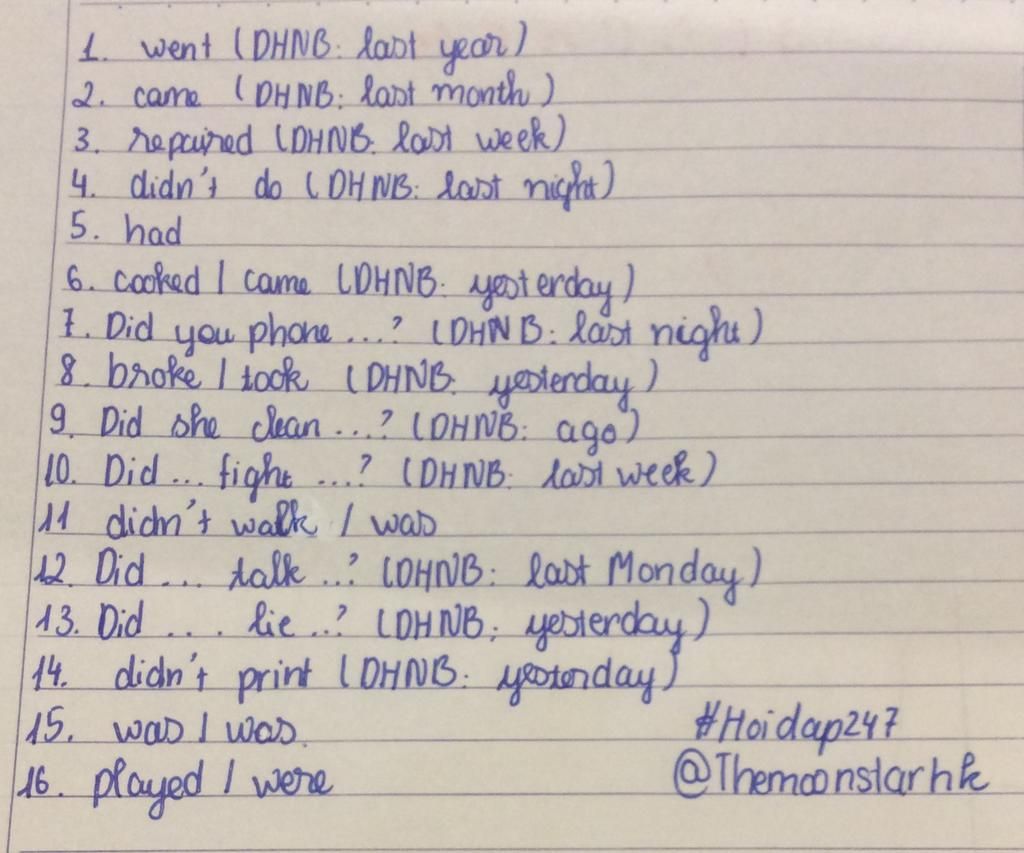 1. went (DHNB: last year)
2. came (DHNB: last month)
3. repaired (DHNB: last week)
4. didn't do (DHNB: last night)
5. had
6. cooked / came (DHNB: yesterday)
7. Did you phone ...? (DHNB: last night)
8. broke / took (DHNB: yesterday)
9. Did she clean ...? (DHNB: ago)
10. Did ... fight ...? (DHNB: last week)
11 didn't walk / was
12. Did ... talk ..? (DHNB: last Monday)
13. Did .... lie ..? (DHNB: yesterday)
14. didn't print (DHNB: yesterday)
15. was / was.
#Hoidap247
16. played / were
@Themoonstarhk